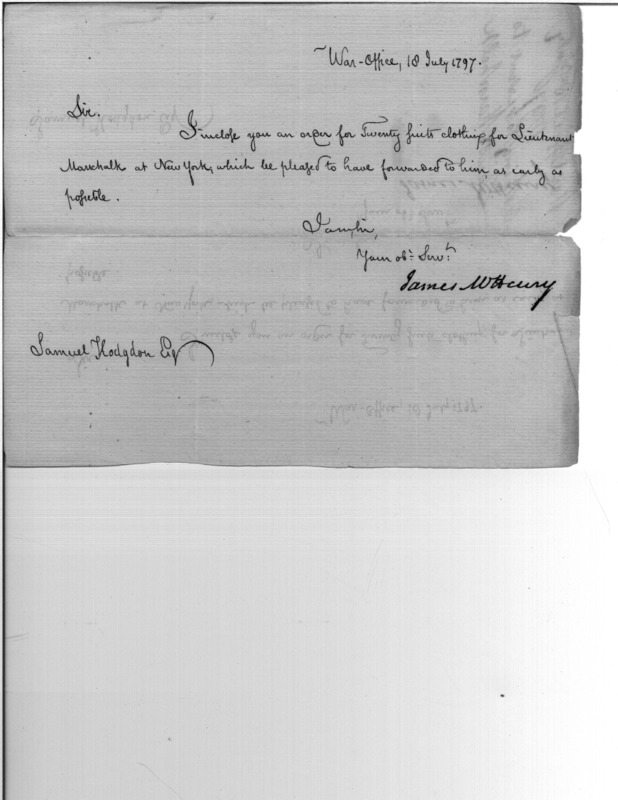 War-Office, 18 July 1797.
Sir.
I inclose you an order for Twenty suits clothing for Lieutenant
Marschalk at New York, which be pleased to have forwarded to him as early as
possible.
I am, Sir,
Your obt. Servt.
James McHenry
Samuel Hodgdon Esq